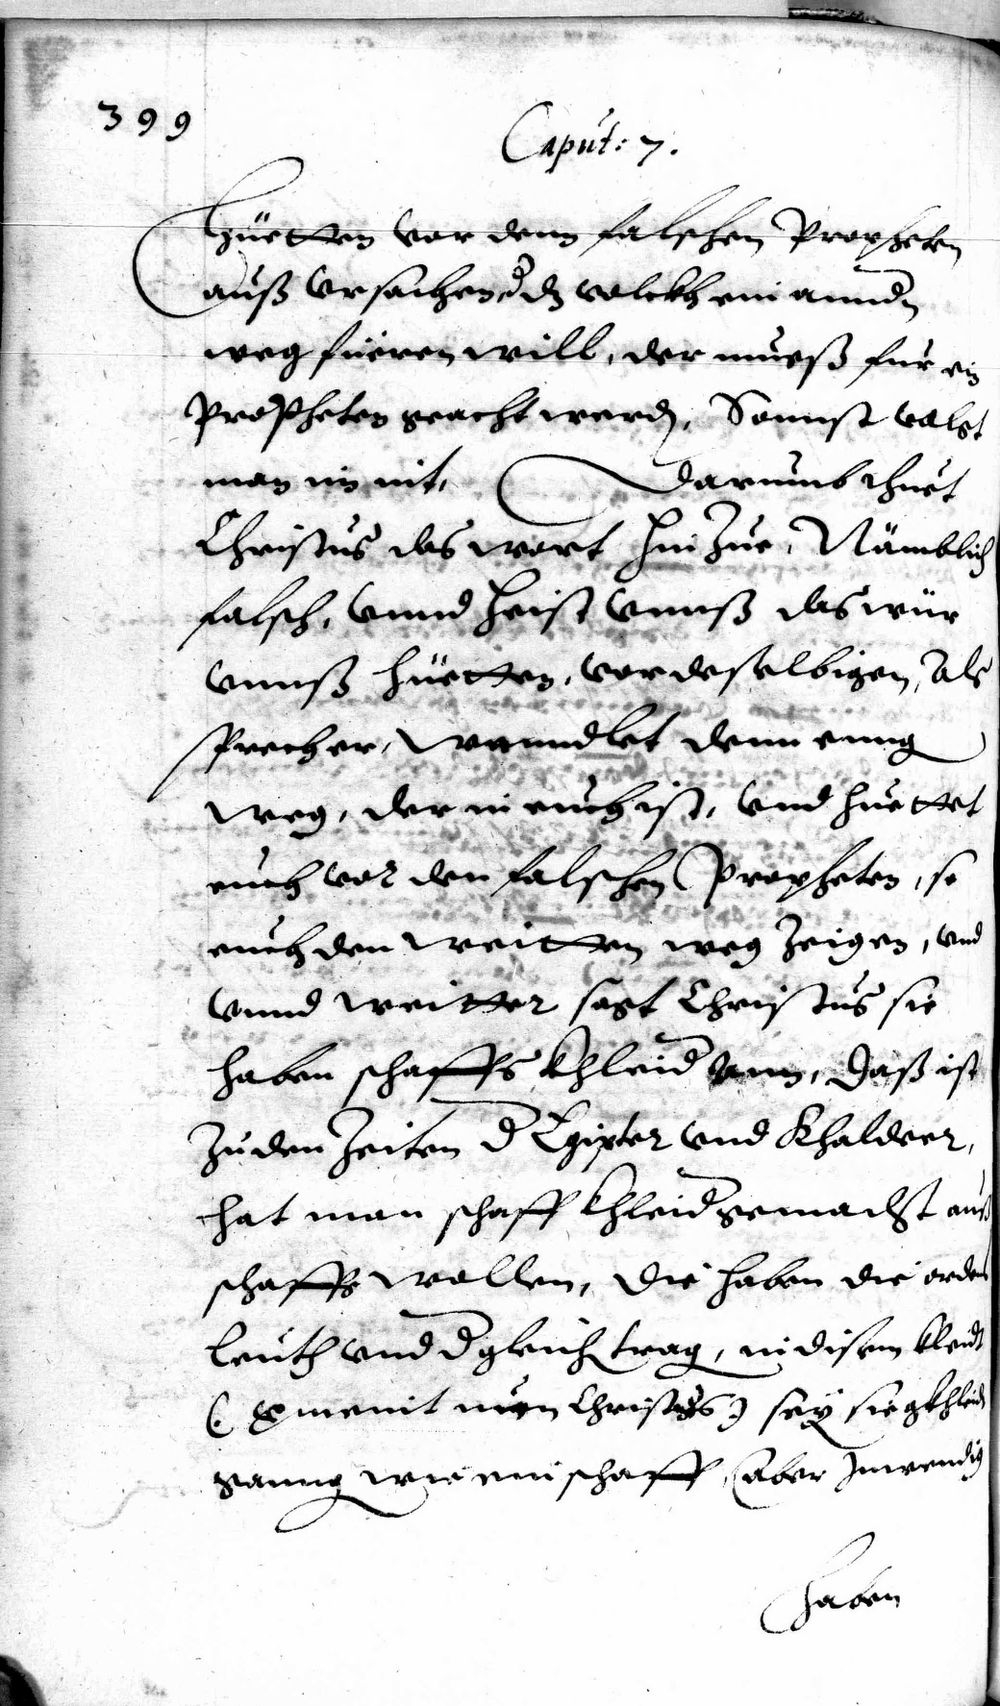 399
Caput: 7.
hüetten vor denn falschen Propheten
auß vrsachen, d dz volckh ein annd
weg füeren will, der mueß für ein
Propheten geacht werd, Sonnst volgt
man im nit, Darumb thuet
Christus das wort hin zue, Nämblich
falsch, vnnd heist vnnß das wür
vnnß hüetten, vor deselbigen, Als
sprech er, Wanndlet denn enng
weg, der in euch ist, vnd huettet
euch vor den falschen Propheten, so
euch den weitten weg zeigen, vnd
vnnd weitter sagt Christus sie
haben schaffs khleid ann, daß ist
zu den zeiten d Egipter vnd Khaldeer,
hat man schaff khleid gemacht auß
schaffs wollen, die haben die ordens
leuth vnd d gleich trag, in disem kleidt
(: meint nun Christus) sey sie gkhleid
ganng wie ein schaff, Aber Inwendig
haben